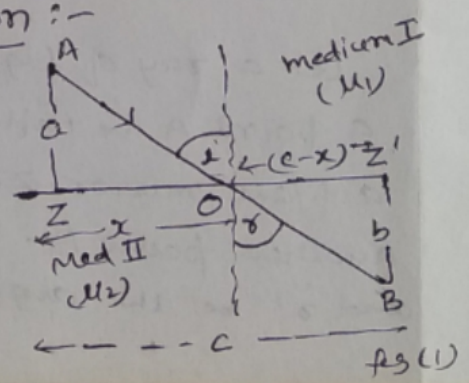 n :-
A
medium I
(μ1)
a
i
(c-x)
Z'
Z
O
x
r
b
Med II
(μ2)
B
c
fig (1)